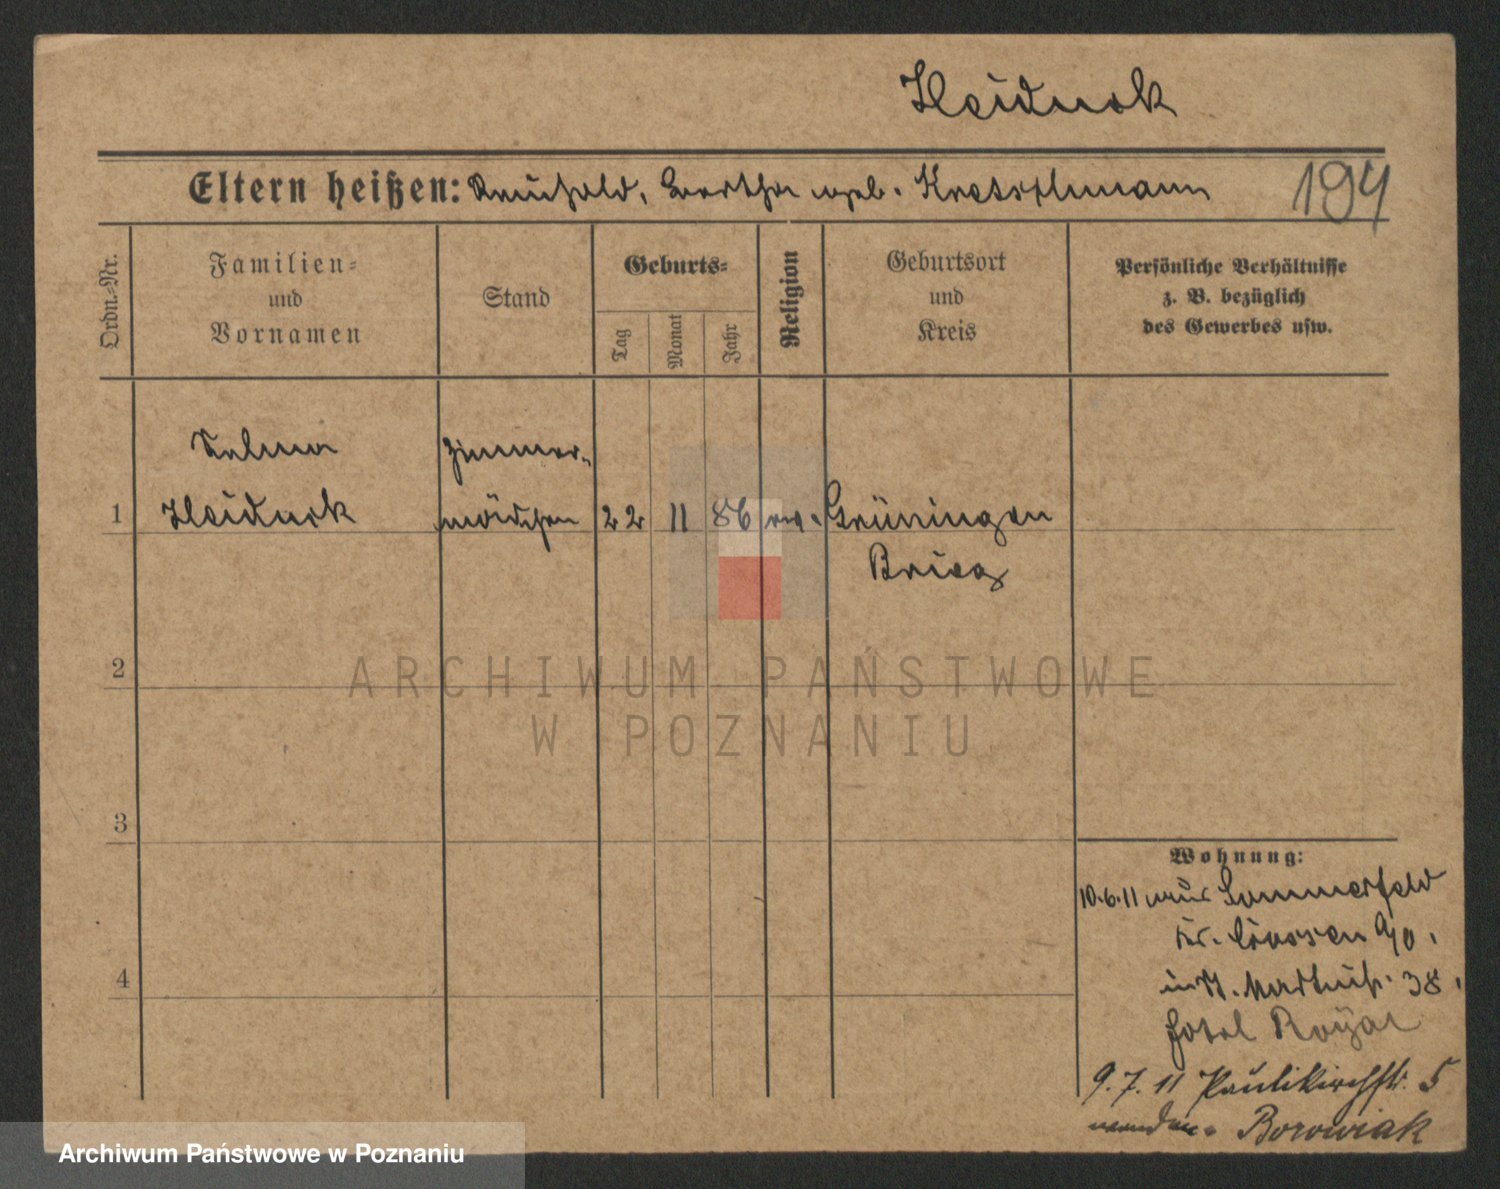 Heiduck
Eltern heißen: Reinhold, Bertha geb. Kretschmann
194
Ordn.-Nr.
Familien-
und
Vornamen
Stand
Geburts-
Tag
Monat
Jahr
Religion
Geburtsort
und
Kreis
Persönliche Verhältnisse
z. B. bezüglich
des Gewerbes usw.
Selma
Heiduck
Zimmer-
mädchen
1
22
11
86
ev.
Grüningen
Brieg
2
ARCHIWUM PAŃSTWOWE
W POZNANIU
3
Wohnung:
10.6.11 aus Sommerfeld
Kr. Crossen
4
St. Martinstr. 38
Hotel Royal
9.7.11 Paulikirchstr. 5
Borowiak
Archiwum Państwowe w Poznaniu